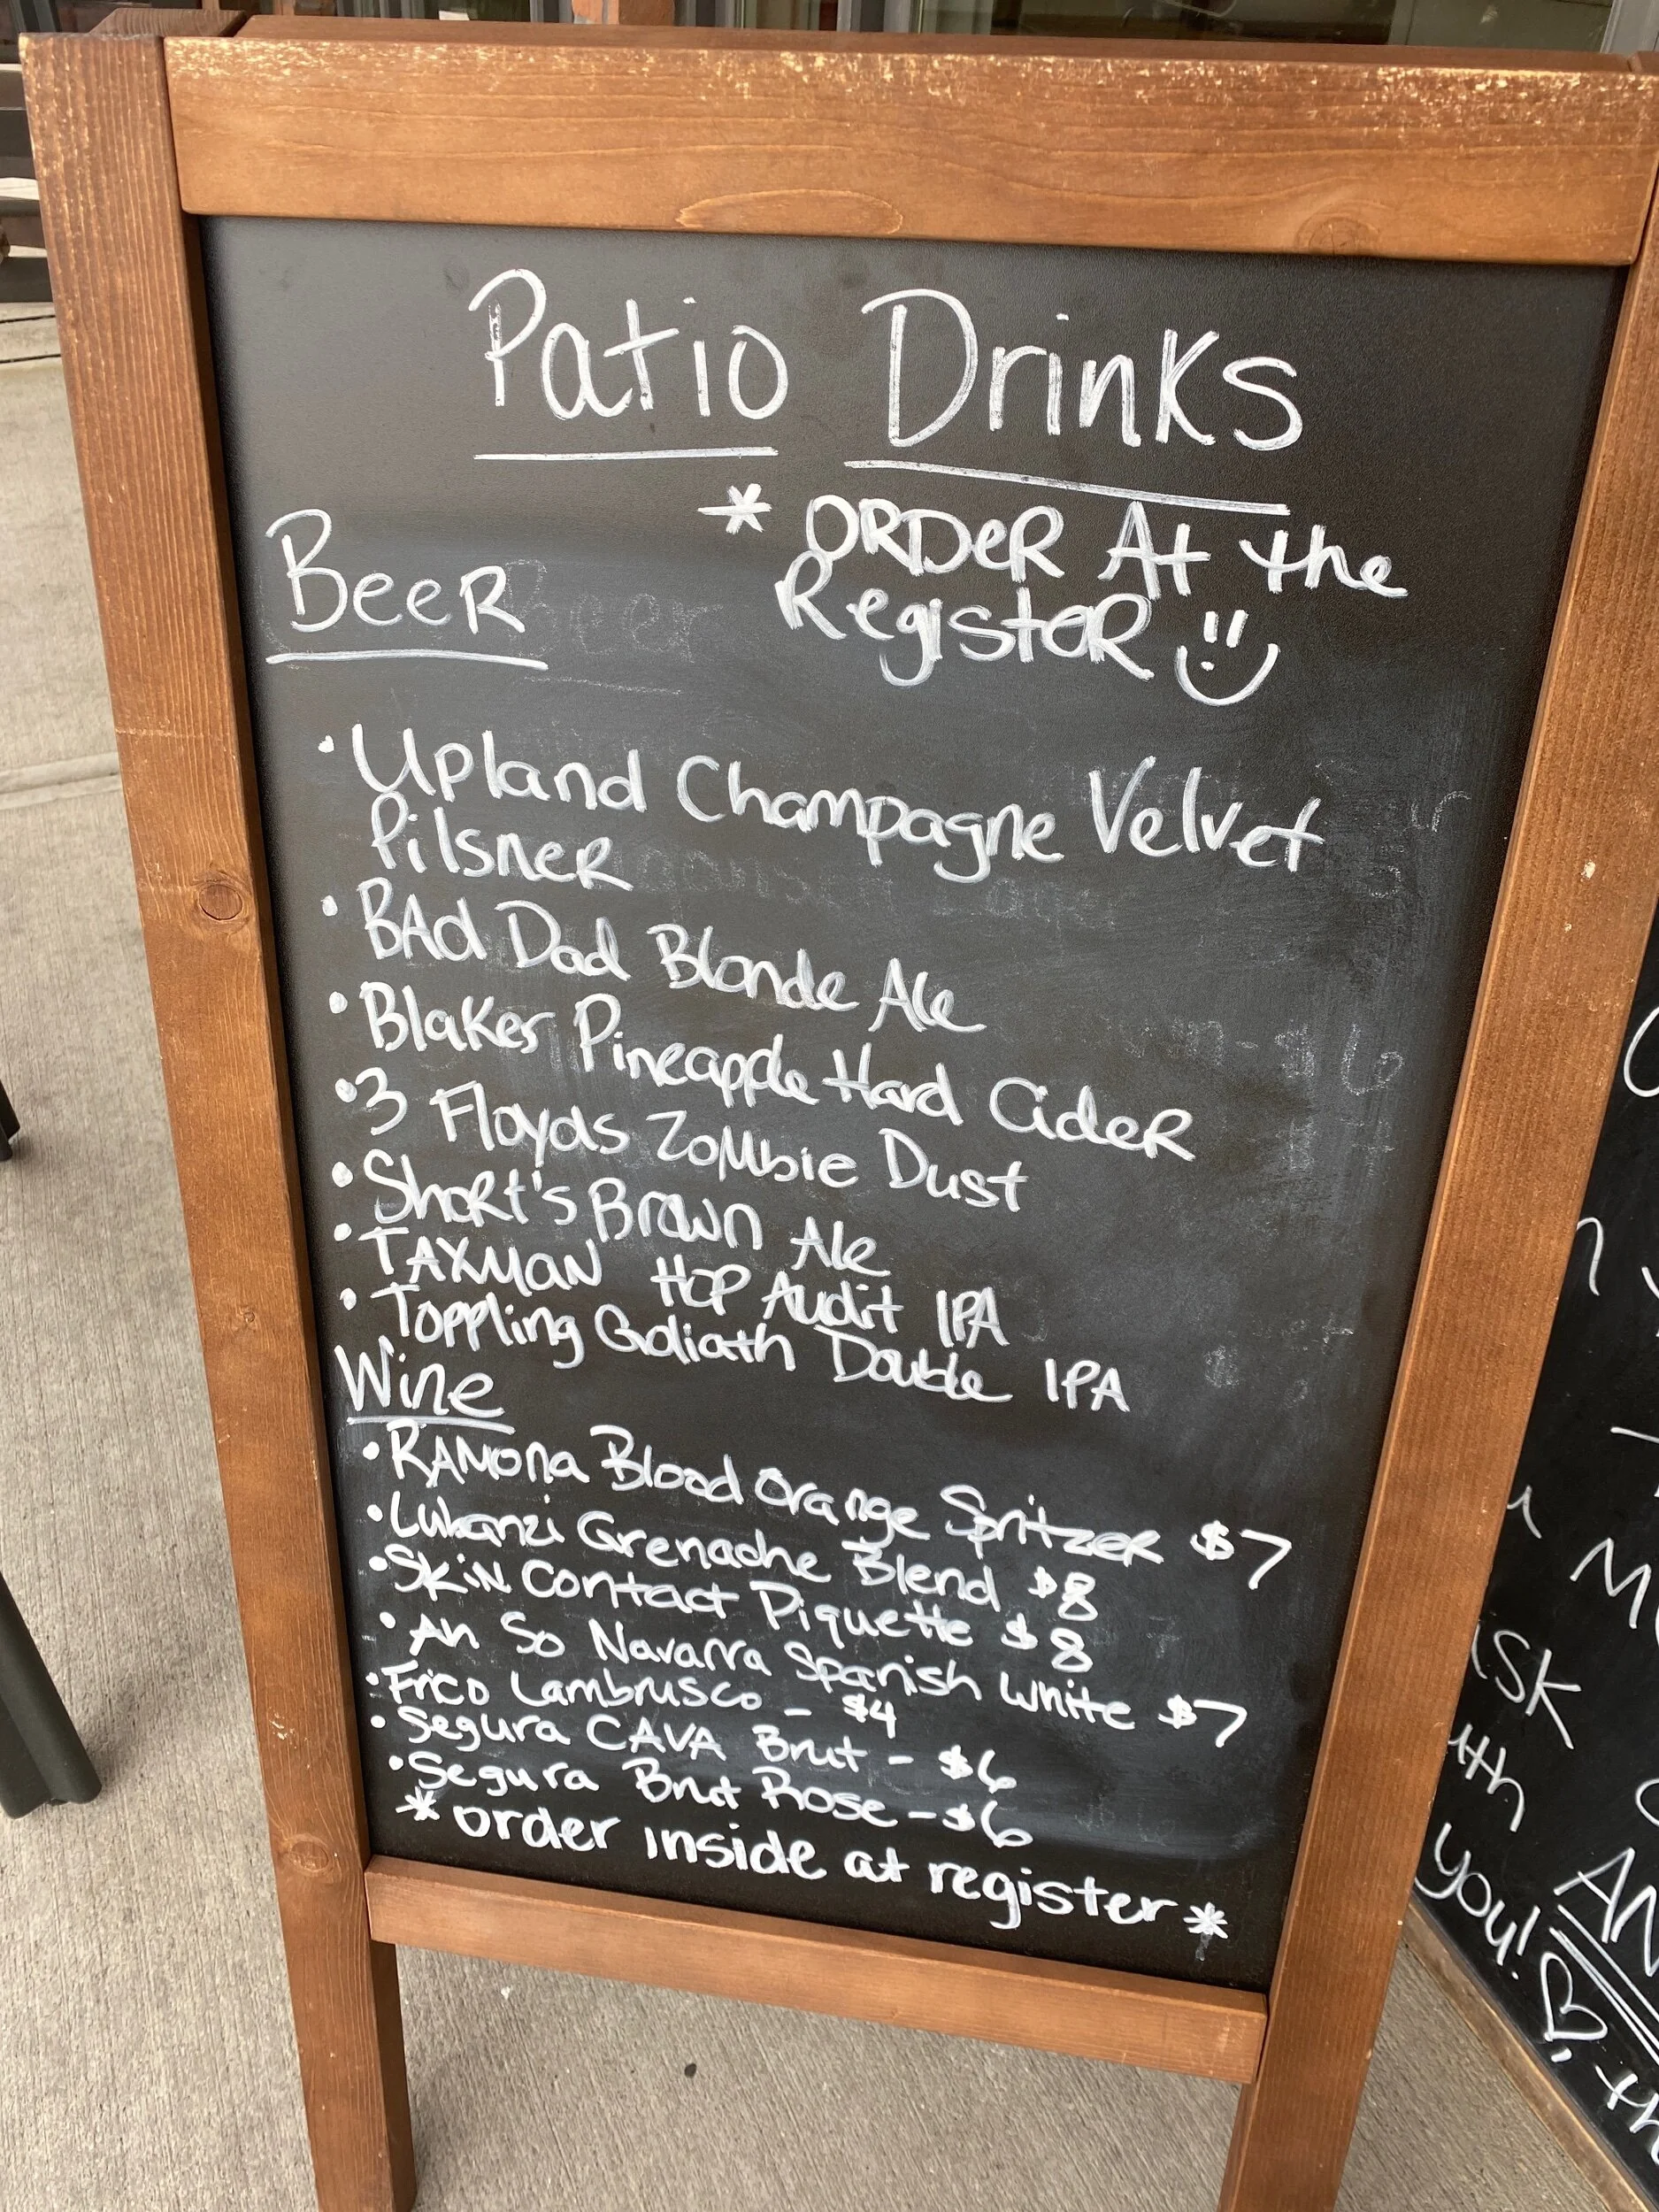 Patio Drinks
* ORDER At the
Register
Beer
• Upland Champagne Velvet
Pilsner
• BAd Dad Blonde Ale
• Blakes Pineapple Hard Cider
• 3 Floyds Zombie Dust
• Short's Brown Ale
• TAXMAN HOP Audit IPA
• Toppling Goliath Double IPA
Wine
• RAMONA Blood Orange Spritzer $7
• Lubanzi Grenache Blend $8
• Skin Contact Piquette $8
• An So Navarra Spanish White $7
• Frico Lambrusco - $4
• Segura CAVA Brut - $6
• Segura Brut Rose - $6
* order inside at register *
ASK
you!